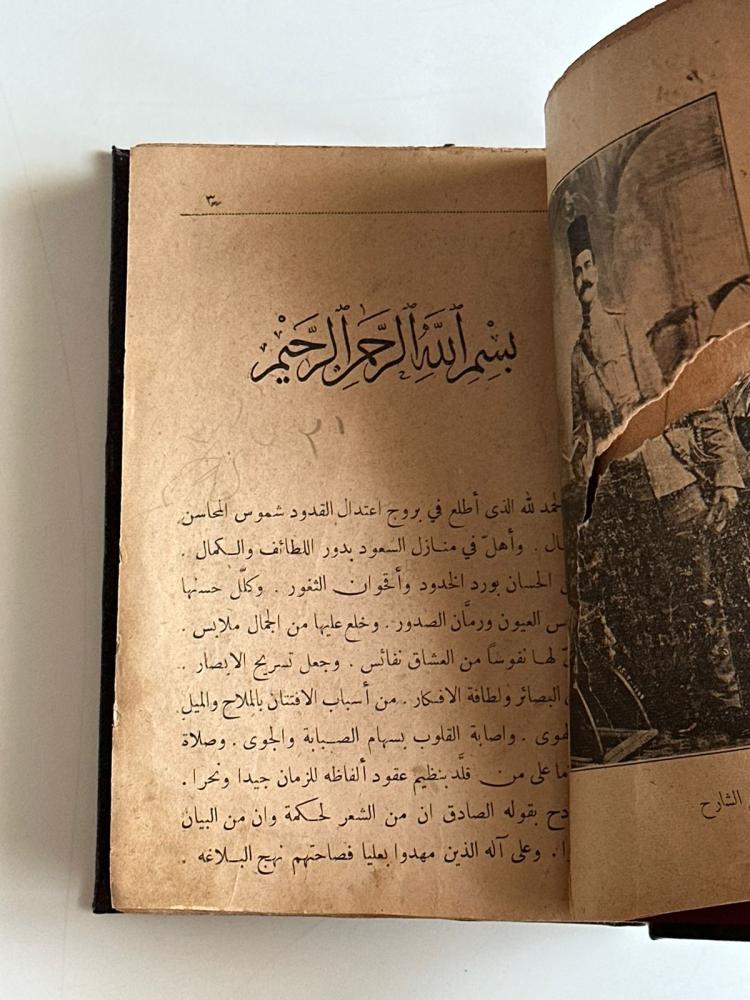 ٣
بِسْمِ اللَّهِ الرَّحْمَنِ الرَّحِيْمِ
٢١
لحمد لله الذى أطلع في بروج اعتدال القدود شموس المحاسن
ـال . وأهلّ في منازل السعود بدور اللطائف والكمال .
الحسان بورد الخدود وأقحوان الثغور . وكلّل حسنها
ـس العيون ورمَّان الصدور . وخلع عليها من الجمال ملابس .
لها نفوساً من العشاق نفائس . وجعل تسريح الابصار .
البصائر ولطافة الافكار . من أسباب الافتتان بالملاح والميل
لهوى . واصابة القلوب بسهام الصبابة والجوى . وصلاة
ما على من قلَّد بنظيم عقود ألفاظه للزمان جيدا ونحرا .
ـدح بقوله الصادق ان من الشعر لحكمة وان من البيان
ـرا . وعلى آله الذين مهدوا بعليا فصاحتهم نهج البلاغه .
الشارح